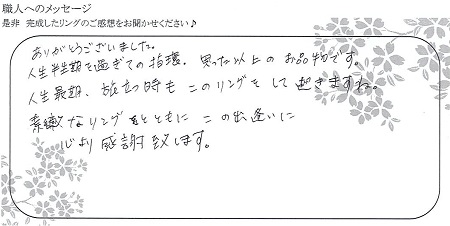 職人へのメッセージ
是非 完成したリングのご感想をお聞かせください♪
ありがとうございました。
人生半生期を過ぎての指環、思った以上のお品物です。
人生最期、旅立つ時も このリングを して逝きますね。
素敵なリングとともに この出逢いに
心より感謝致します。